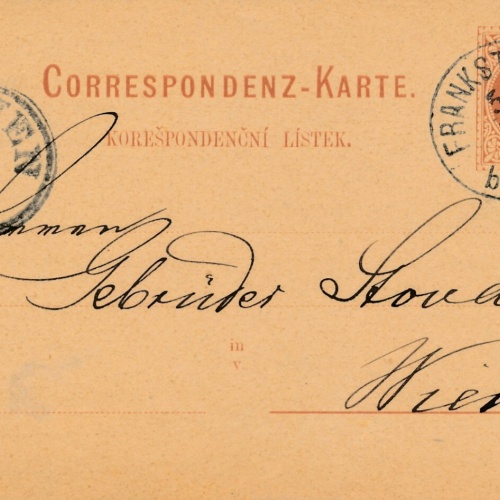 CORRESPONDENZ-KARTE.
KOREŠPONDENČNÍ LÍSTEK.
FRANKS
b
IEN
Herren
Gebrüder Stova
in
v.
Wien